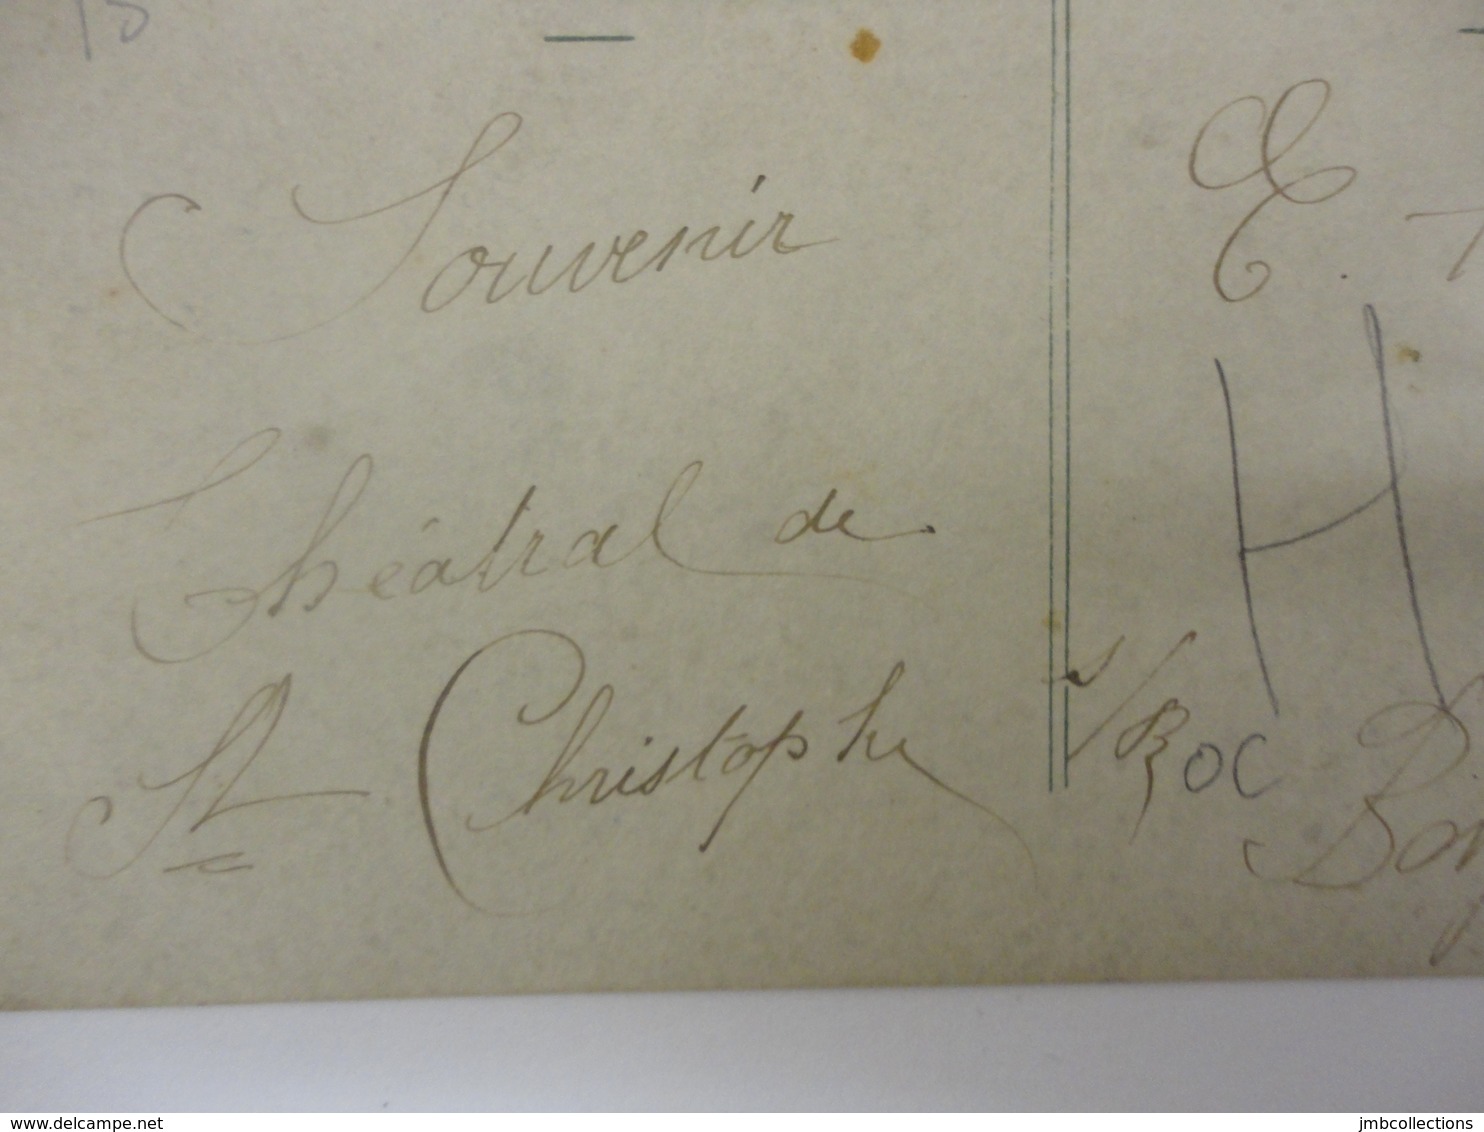 Souvenir
Théatral de
St Christophe s/Roc
E.
H
delcampe.net
jmbcollections